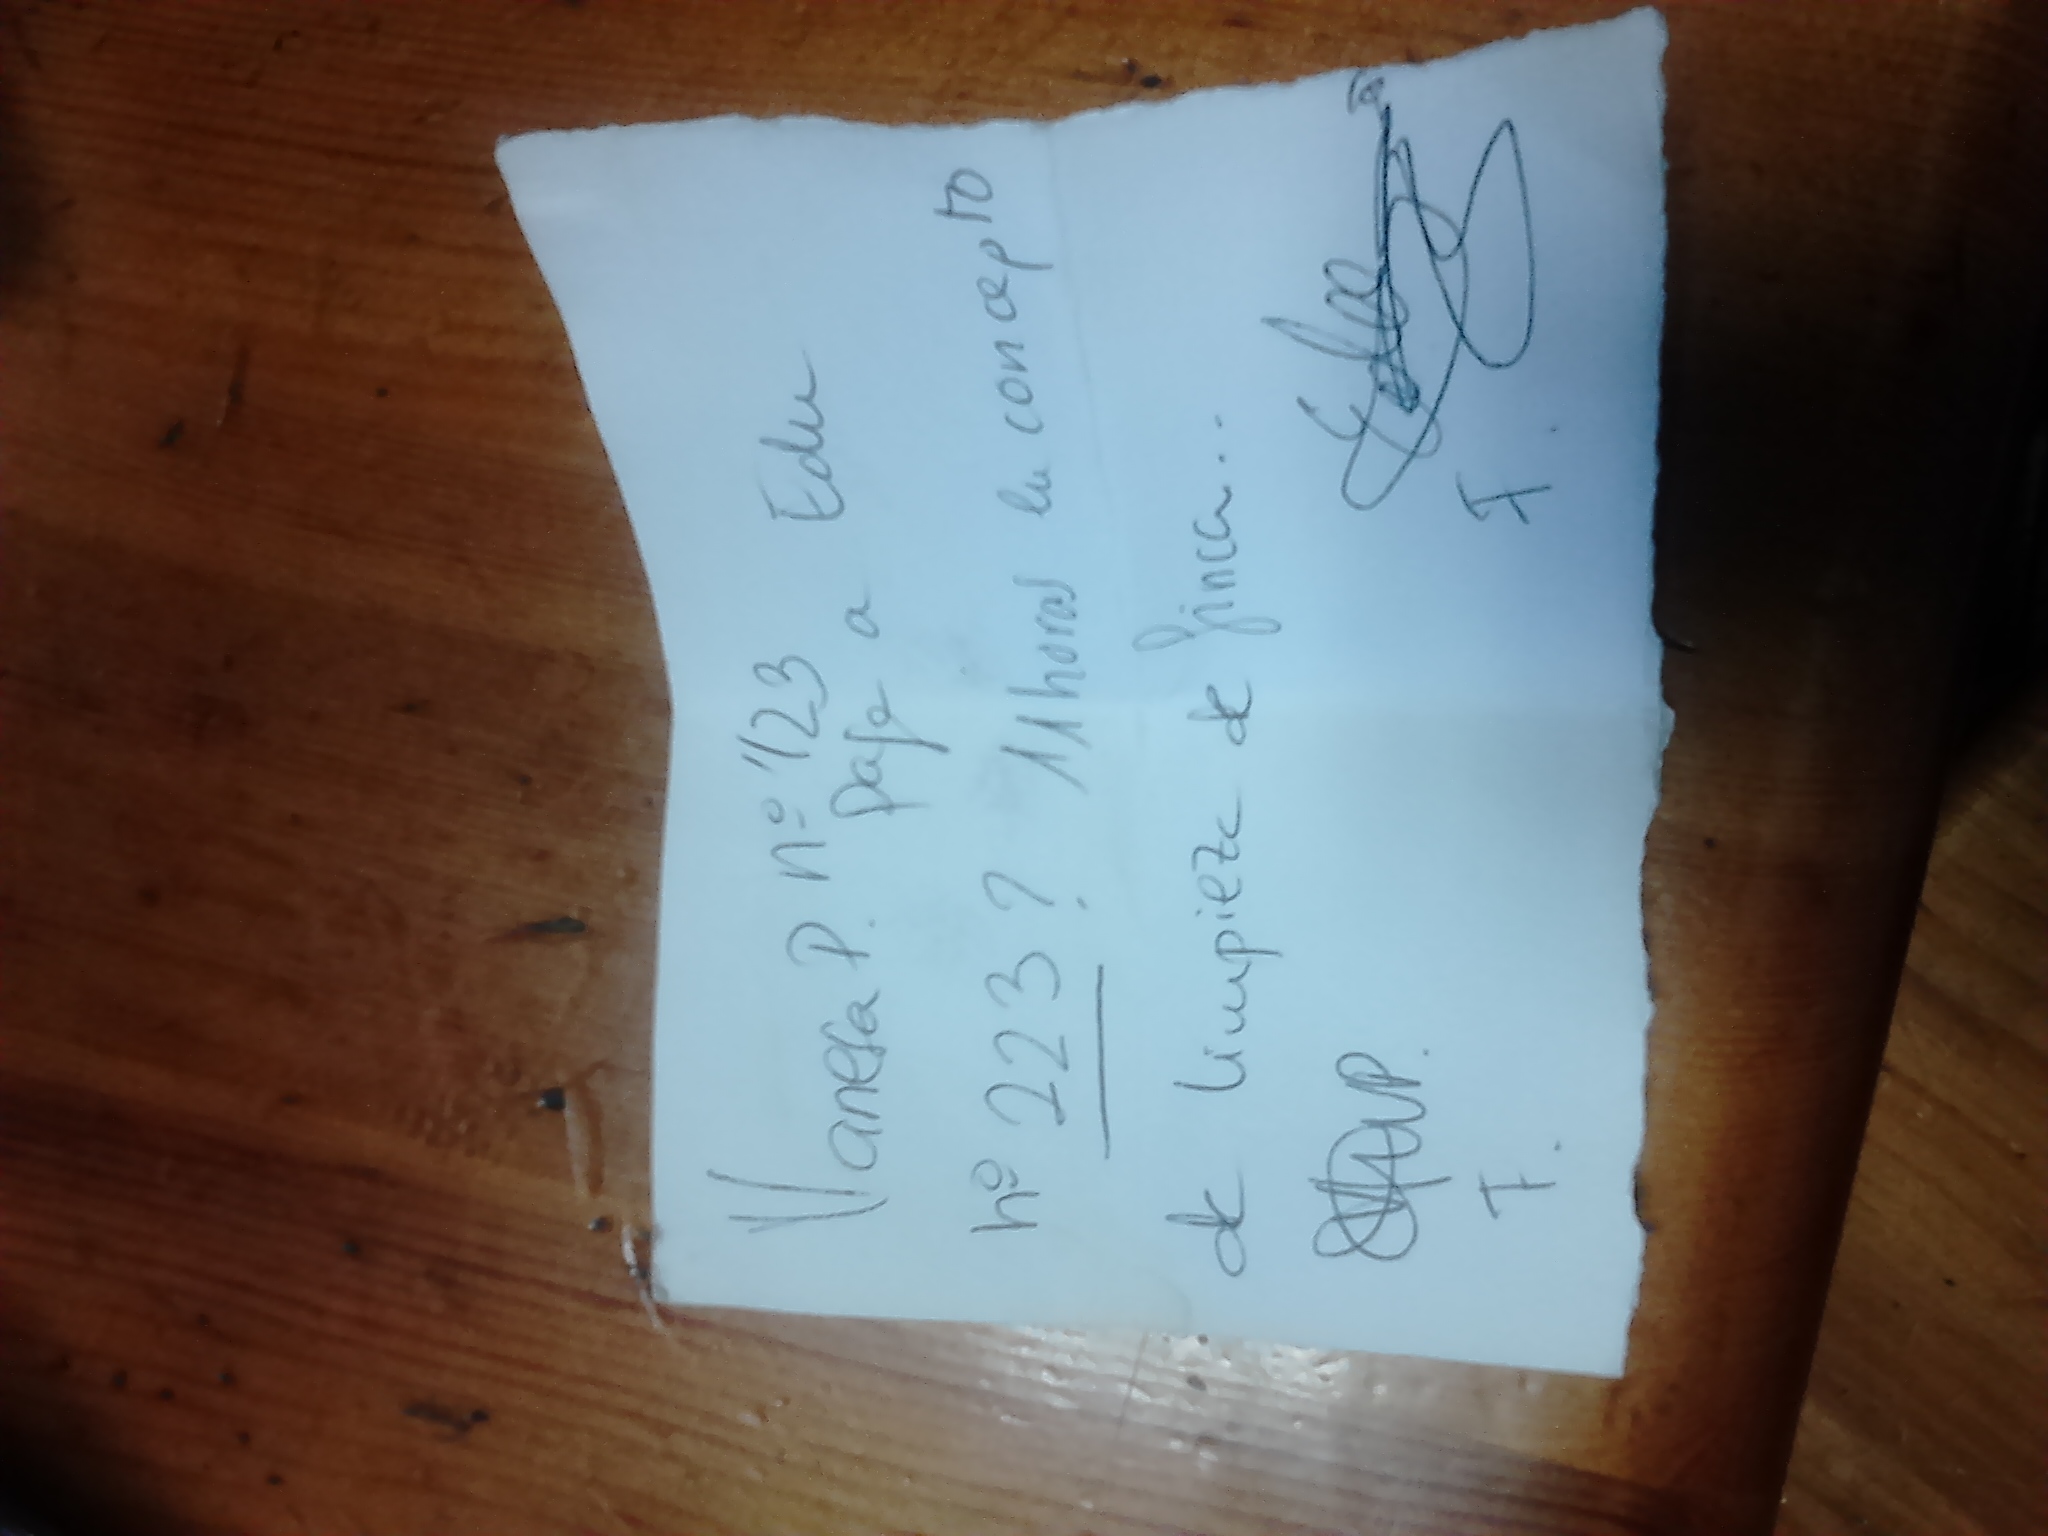 Vanesa P. nº 123 paga a Edu
nº 223? 11 horas en concepto
de limpieza de finca..
F. F.